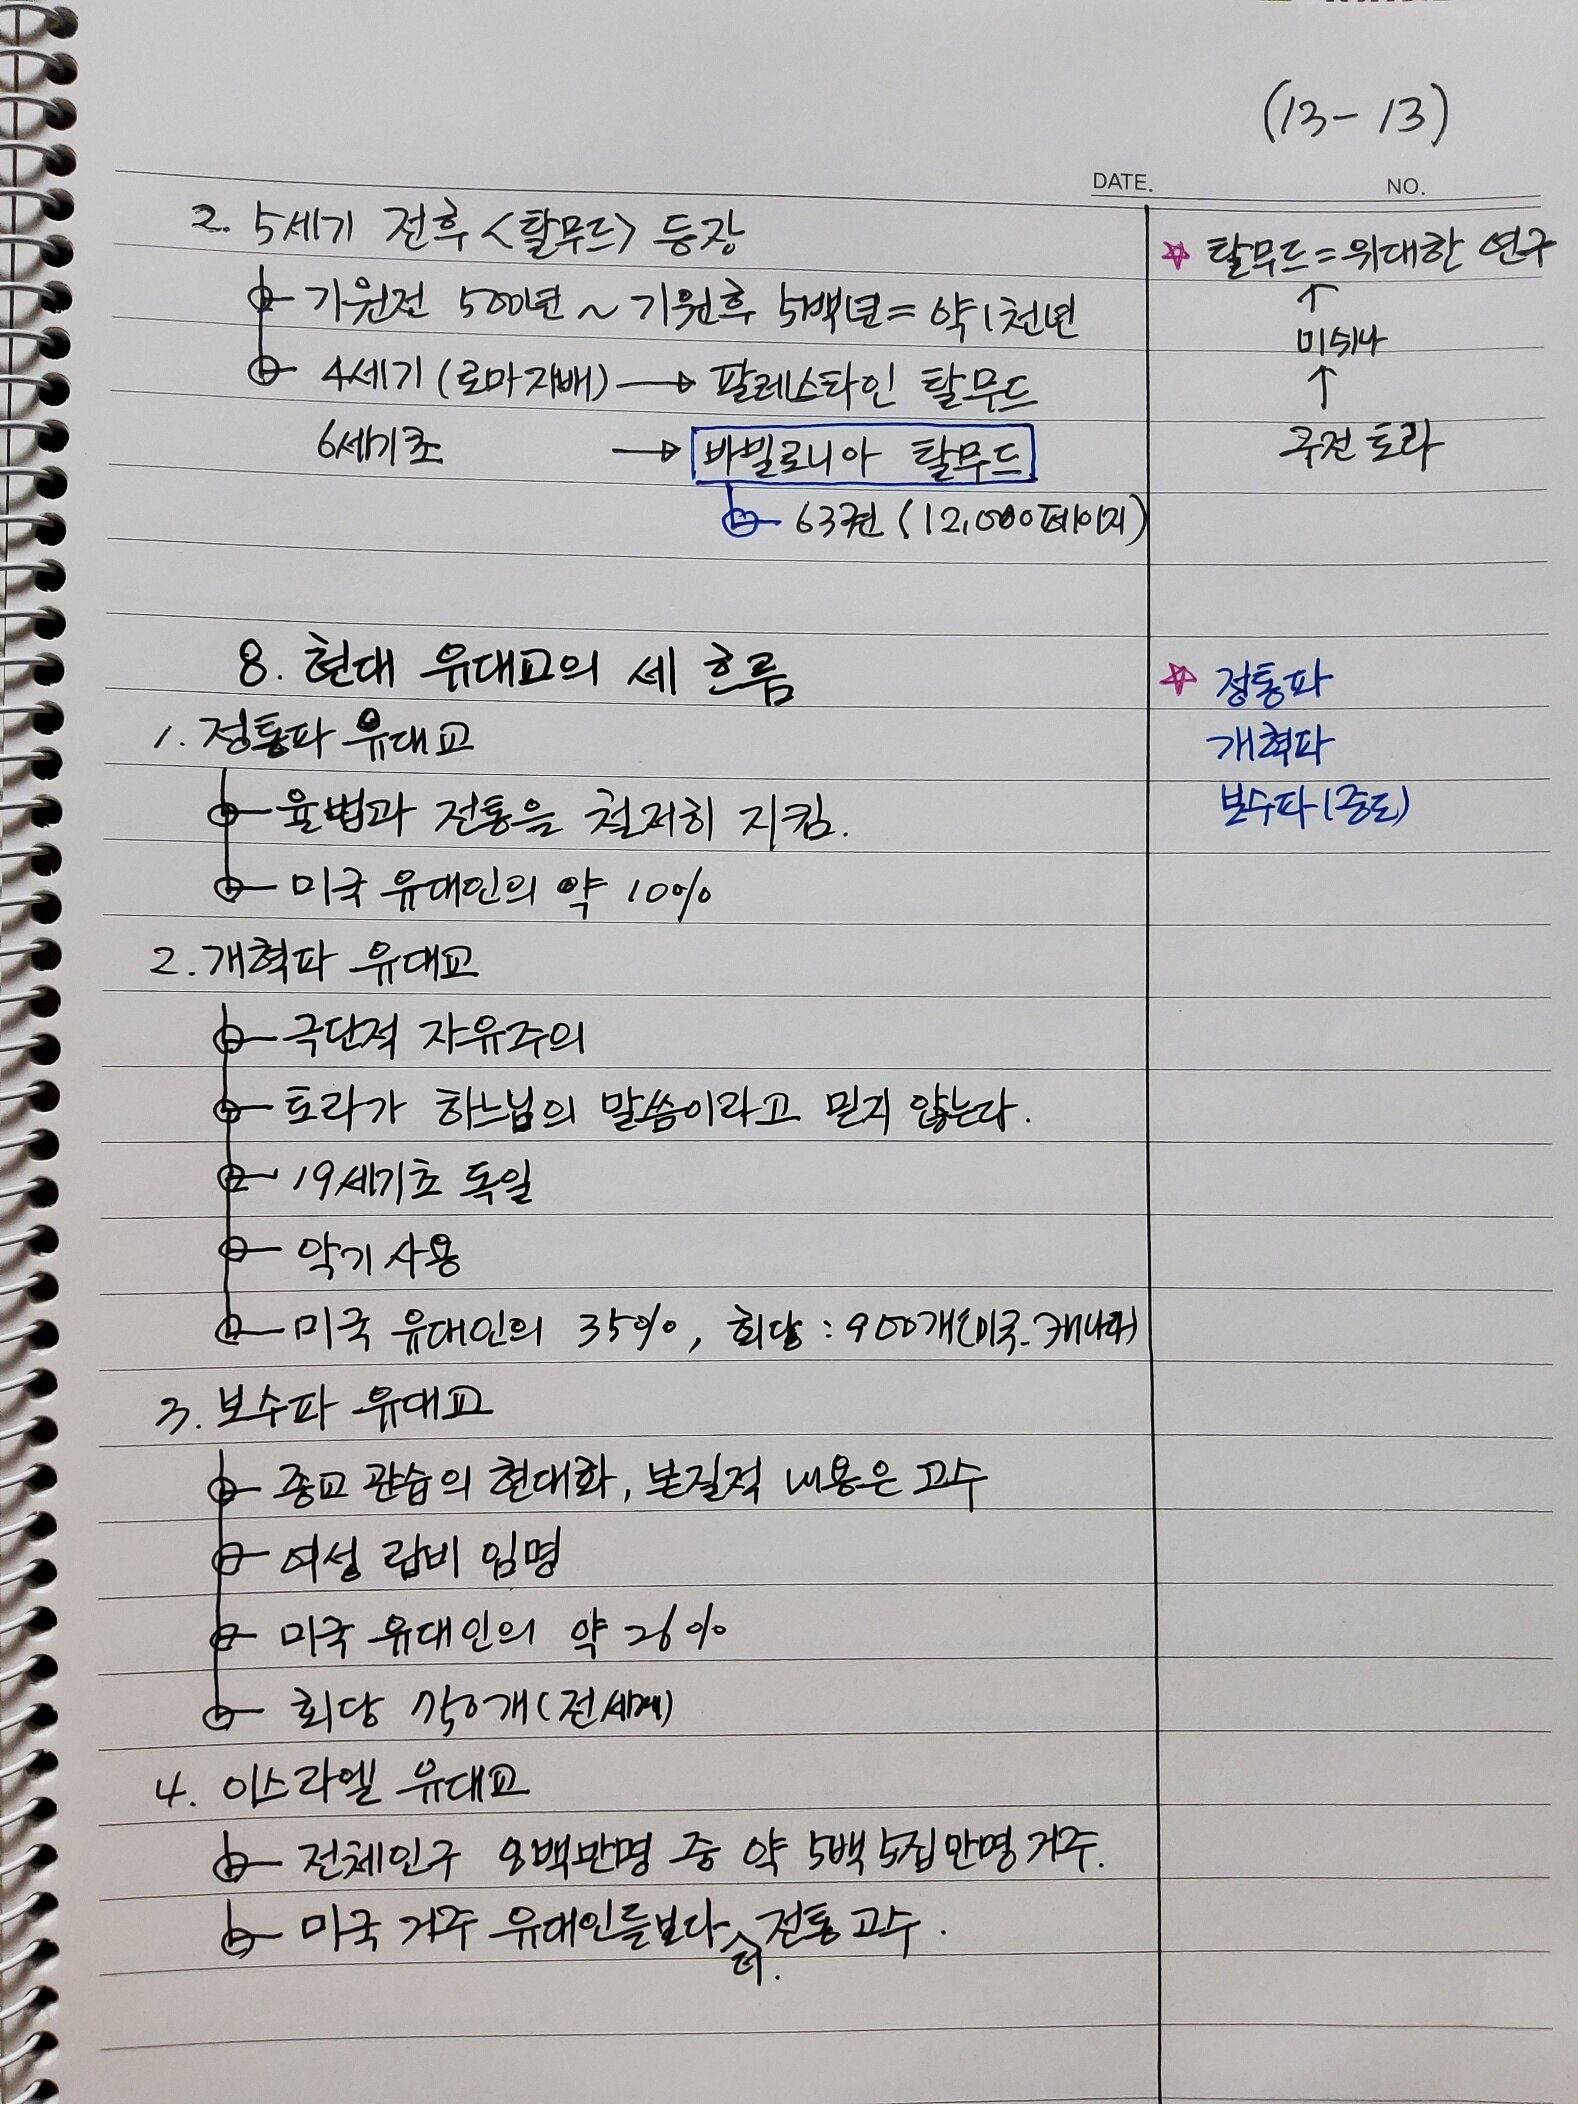 (13-13)
DATE.
NO.
2. 5세기 전후 <탈무드> 등장
기원전 500년 ~ 기원후 5백년 = 약 1천년
4세기 (로마 지배) → 팔레스타인 탈무드
6세기초 → 바빌로니아 탈무드
63권 (12,000페이지)
☆ 탈무드 = 위대한 연구
↑
미쉬나
↑
구전 토라
8. 현대 유대교의 세 흐름
1. 정통파 유대교
율법과 전통을 철저히 지킴.
미국 유대인의 약 10%
2. 개혁파 유대교
극단적 자유주의
토라가 하느님의 말씀이라고 믿지 않는다.
19세기초 독일
악기 사용
미국 유대인의 35%, 회당 : 900개(미국-캐나다)
3. 보수파 유대교
종교 관습의 현대화, 본질적 내용은 고수
여성 랍비 임명
미국 유대인의 약 26%
회당 750개 (전세계)
4. 이스라엘 유대교
전체인구 8백만명 중 약 5백 5십만명 거주.
미국 거주 유대인들보다 더 전통 고수.
☆ 정통파
개혁파
보수파 (중도)